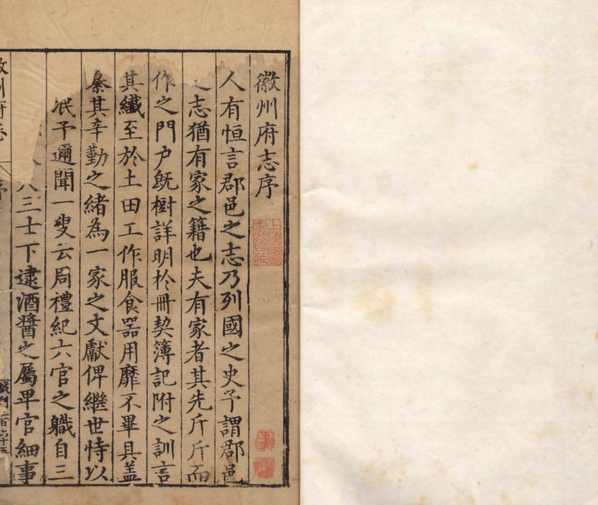 徽州府志序
人有恒言郡邑之志乃列國之史予謂郡邑
志猶有家之籍也夫有家者其先斤斤而
作之門户旣樹詳明於冊契簿記附之訓言
其纎至於土田工作服食器用靡不畢具盖
絫其辛勤之緒為一家之文獻俾繼世恃以
泯予邇聞一叟云周禮紀六官之軄自三
八三士下逮酒醬之屬畢官細事
州府志